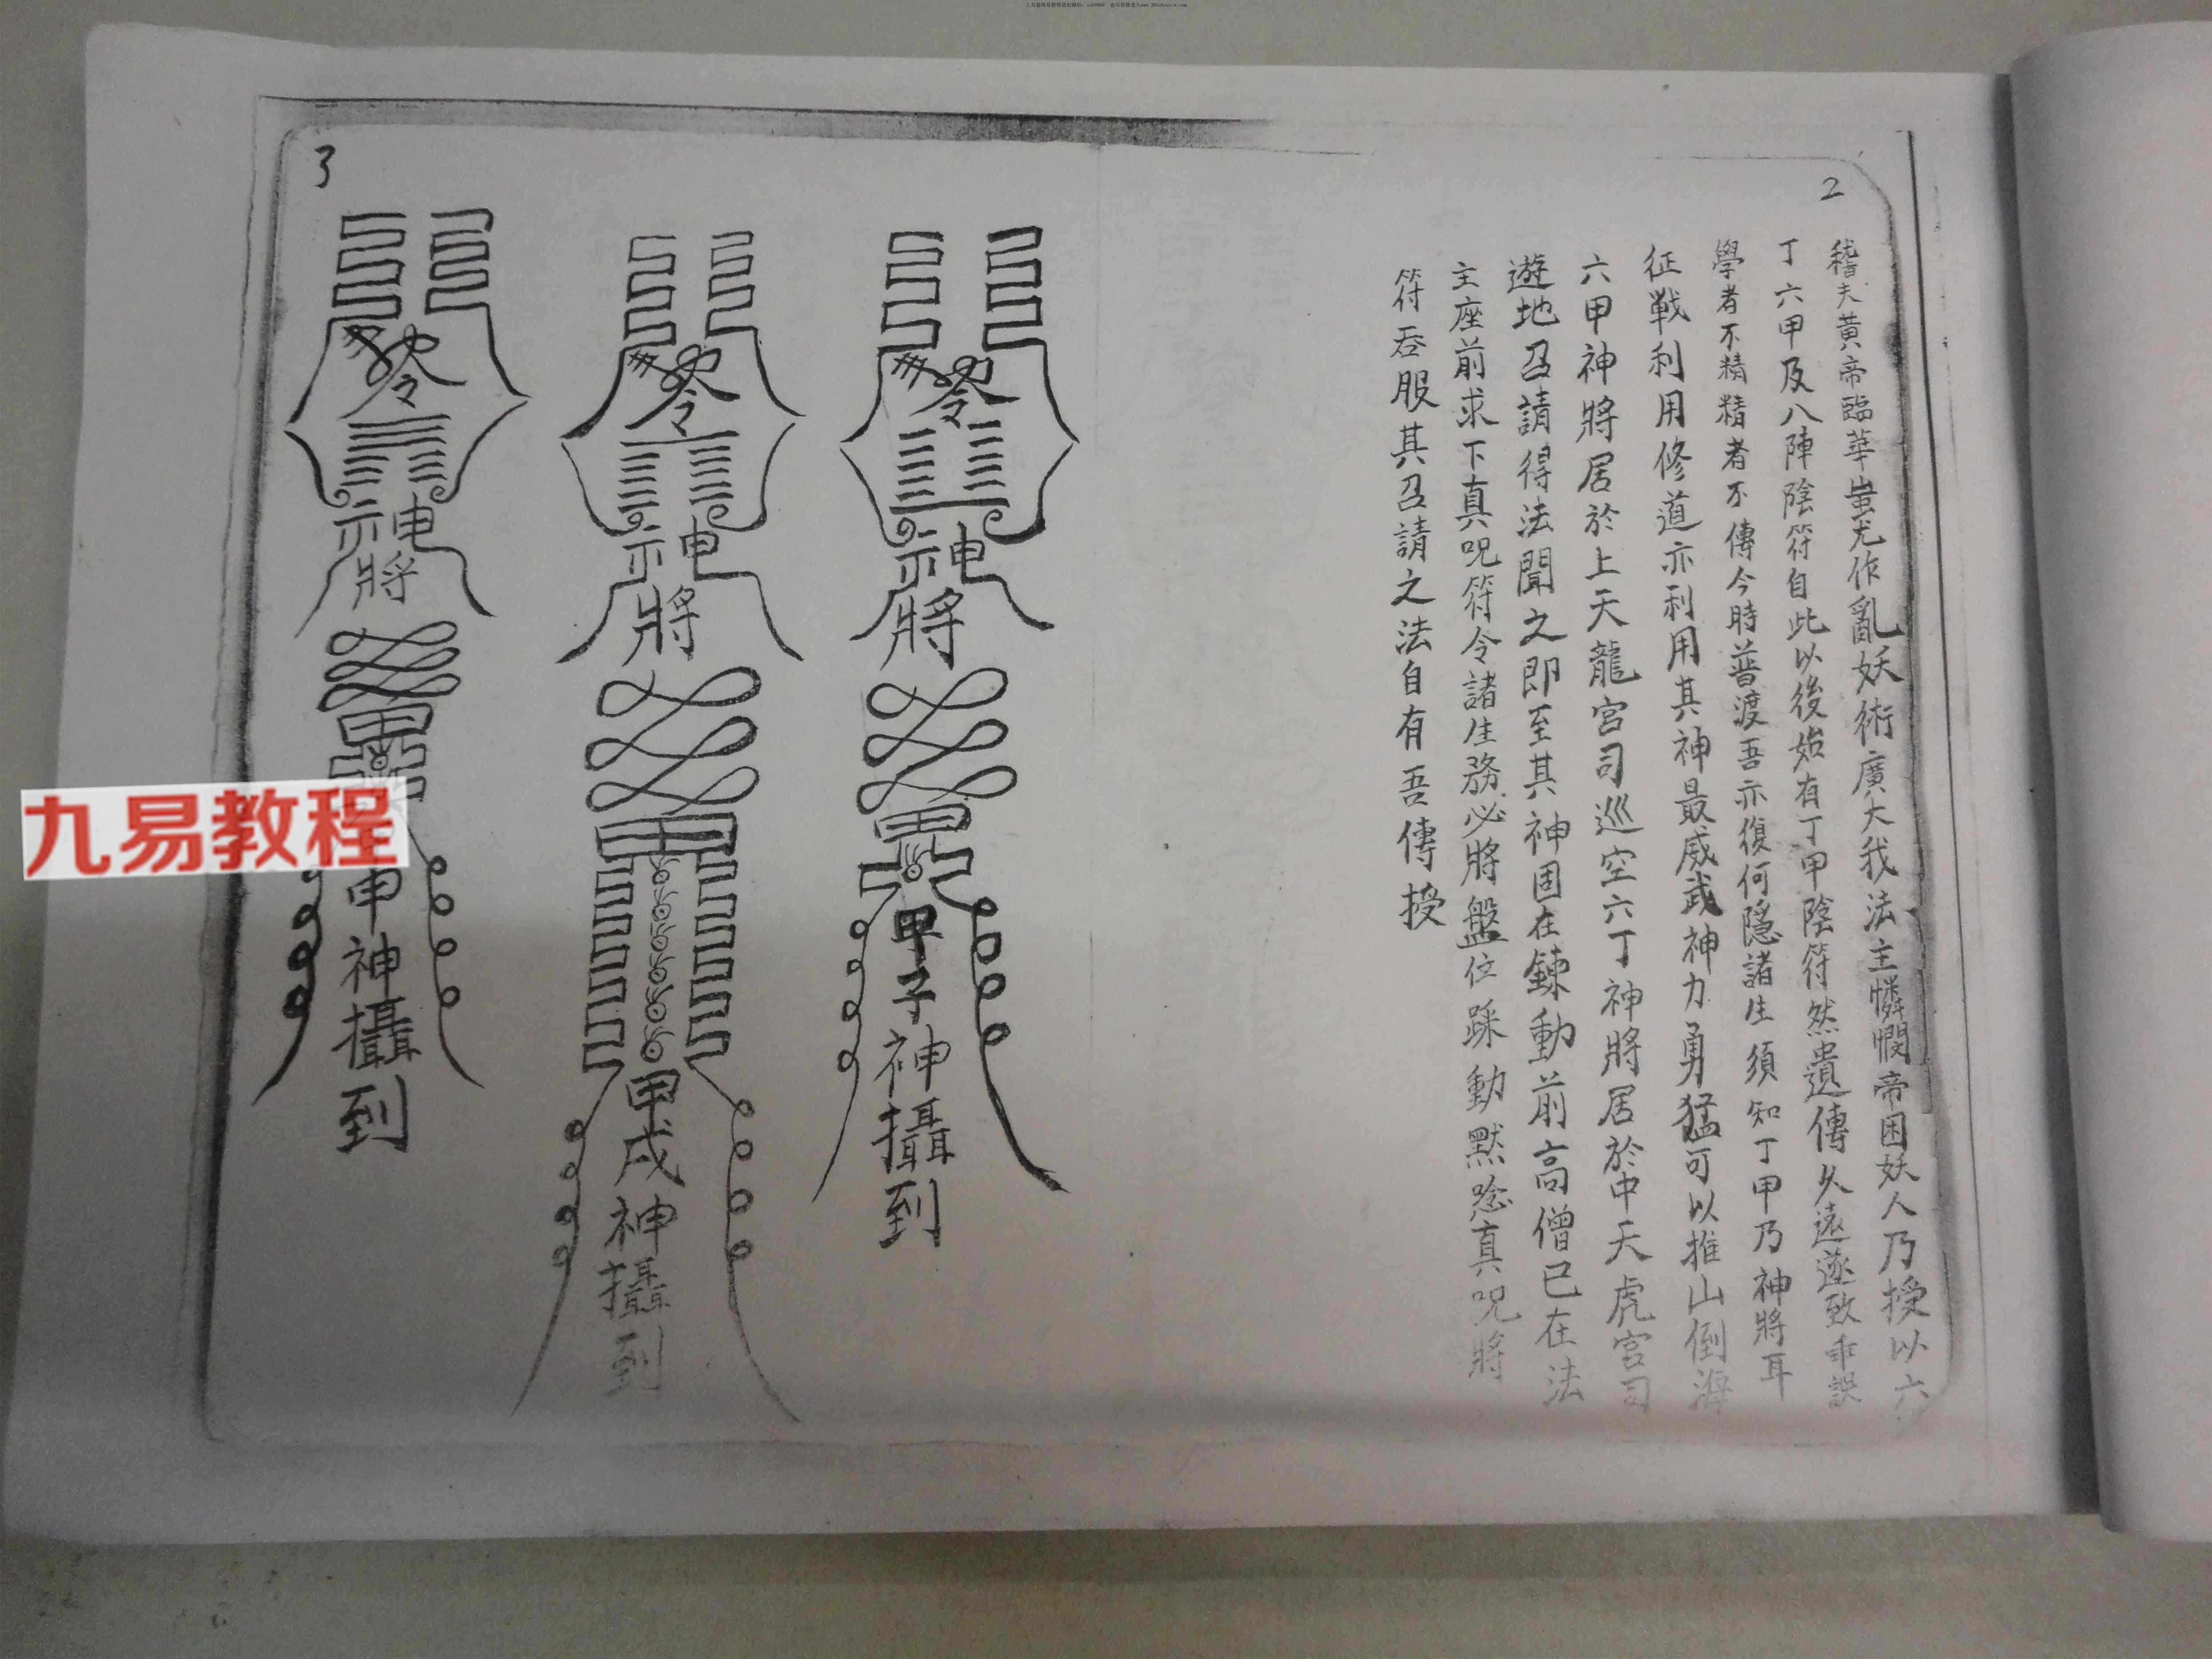 2
稽夫黃帝臨華蚩尤作亂妖術廣大我法主憐憫帝困妖人乃授以六
丁六甲及八陣陰符自此以後始有丁甲陰符然遺傳久遠遂致乖誤
學者不精精者不傳今時普渡吾亦復何隱諸生須知丁甲乃神將耳
征戰利用修道亦利用其神最威武神力勇猛可以推山倒海
六甲神將居於上天龍宮司巡空六丁神將居於中天虎宮司
遊地召請得法聞之即至其神固在鍊動前高僧已在法
主座前求下真咒符令諸生務必將盤位踩動默唸真咒將
符吞服其召請之法自有吾傳授
3
神將
甲子神攝到
神將
甲戌神攝到
神將
申神攝到
九易教程